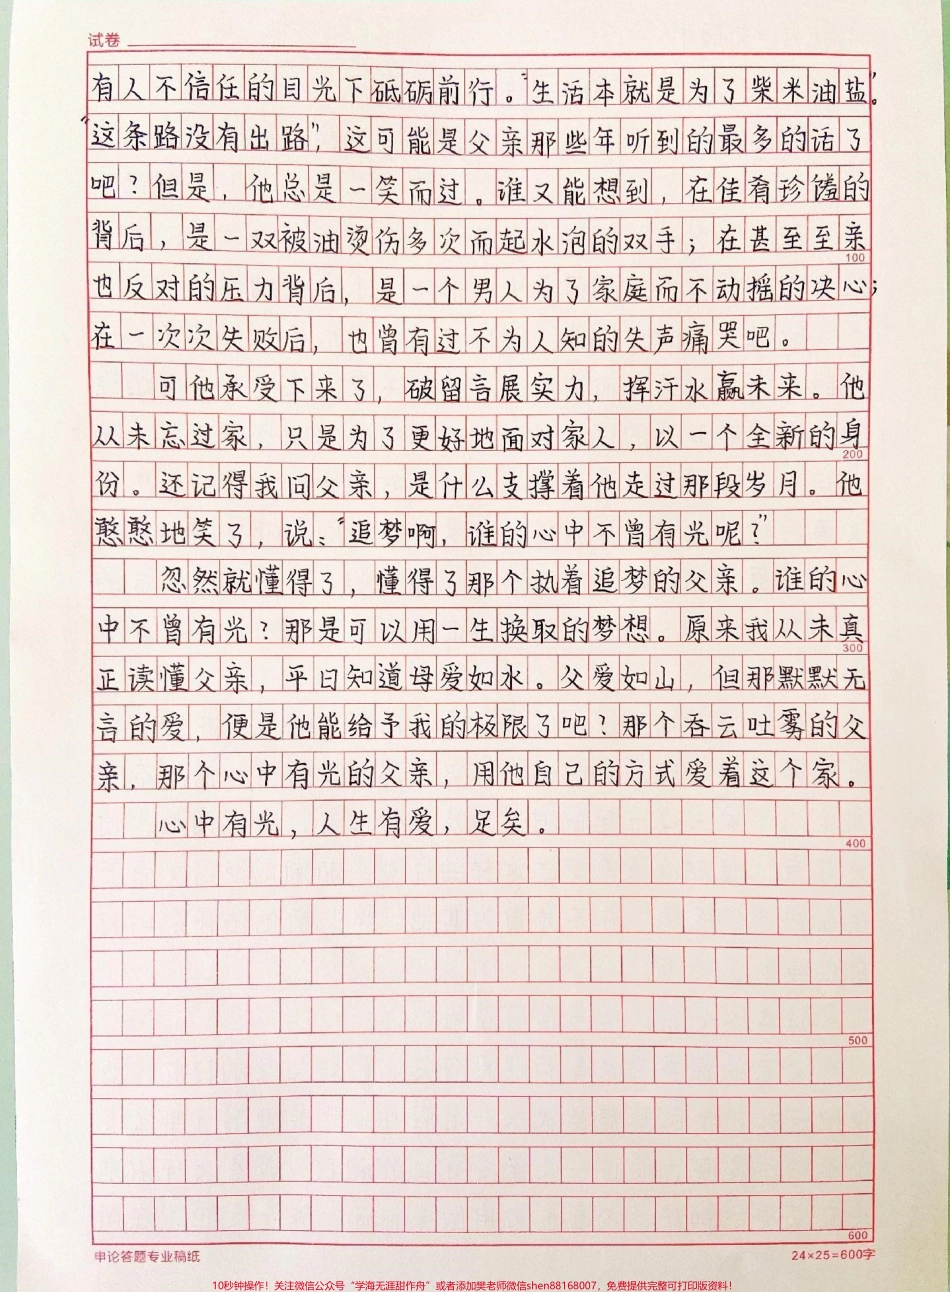 试卷
有人不信任的目光下砥砺前行。“生活本就是为了柴米油盐”。
“这条路没有出路”，这可能是父亲那些年听到的最多的话了
吧？但是，他总是一笑而过。谁又能想到，在佳肴珍馐的
背后，是一双被油烫伤多次而起水泡的双手；在甚至至亲
100
也反对的压力背后，是一个男人为了家庭而不动摇的决心；
在一次次失败后，也曾有过不为人知的失声痛哭吧。
可他承受下来了，破留言展实力，挥汗水赢未来。他
从未忘过家，只是为了更好地面对家人，以一个全新的身
200
份。还记得我问父亲，是什么支撑着他走过那段岁月。他
憨憨地笑了，说：“追梦啊，谁的心中不曾有光呢？”
忽然就懂得了，懂得了那个执着追梦的父亲。谁的心
中不曾有光？那是可以用一生换取的梦想。原来我从未真
300
正读懂父亲，平日知道母爱如水。父爱如山，但那默默无
言的爱，便是他能给予我的极限了吧？那个吞云吐雾的父
亲，那个心中有光的父亲，用他自己的方式爱着这个家。
心中有光，人生有爱，足矣。
400
500
600
申论答题专业稿纸
24×25=600字
10秒钟操作！关注微信公众号“学海无涯甜作舟”或者添加樊老师微信shen88168007，免费提供完整可打印版资料！